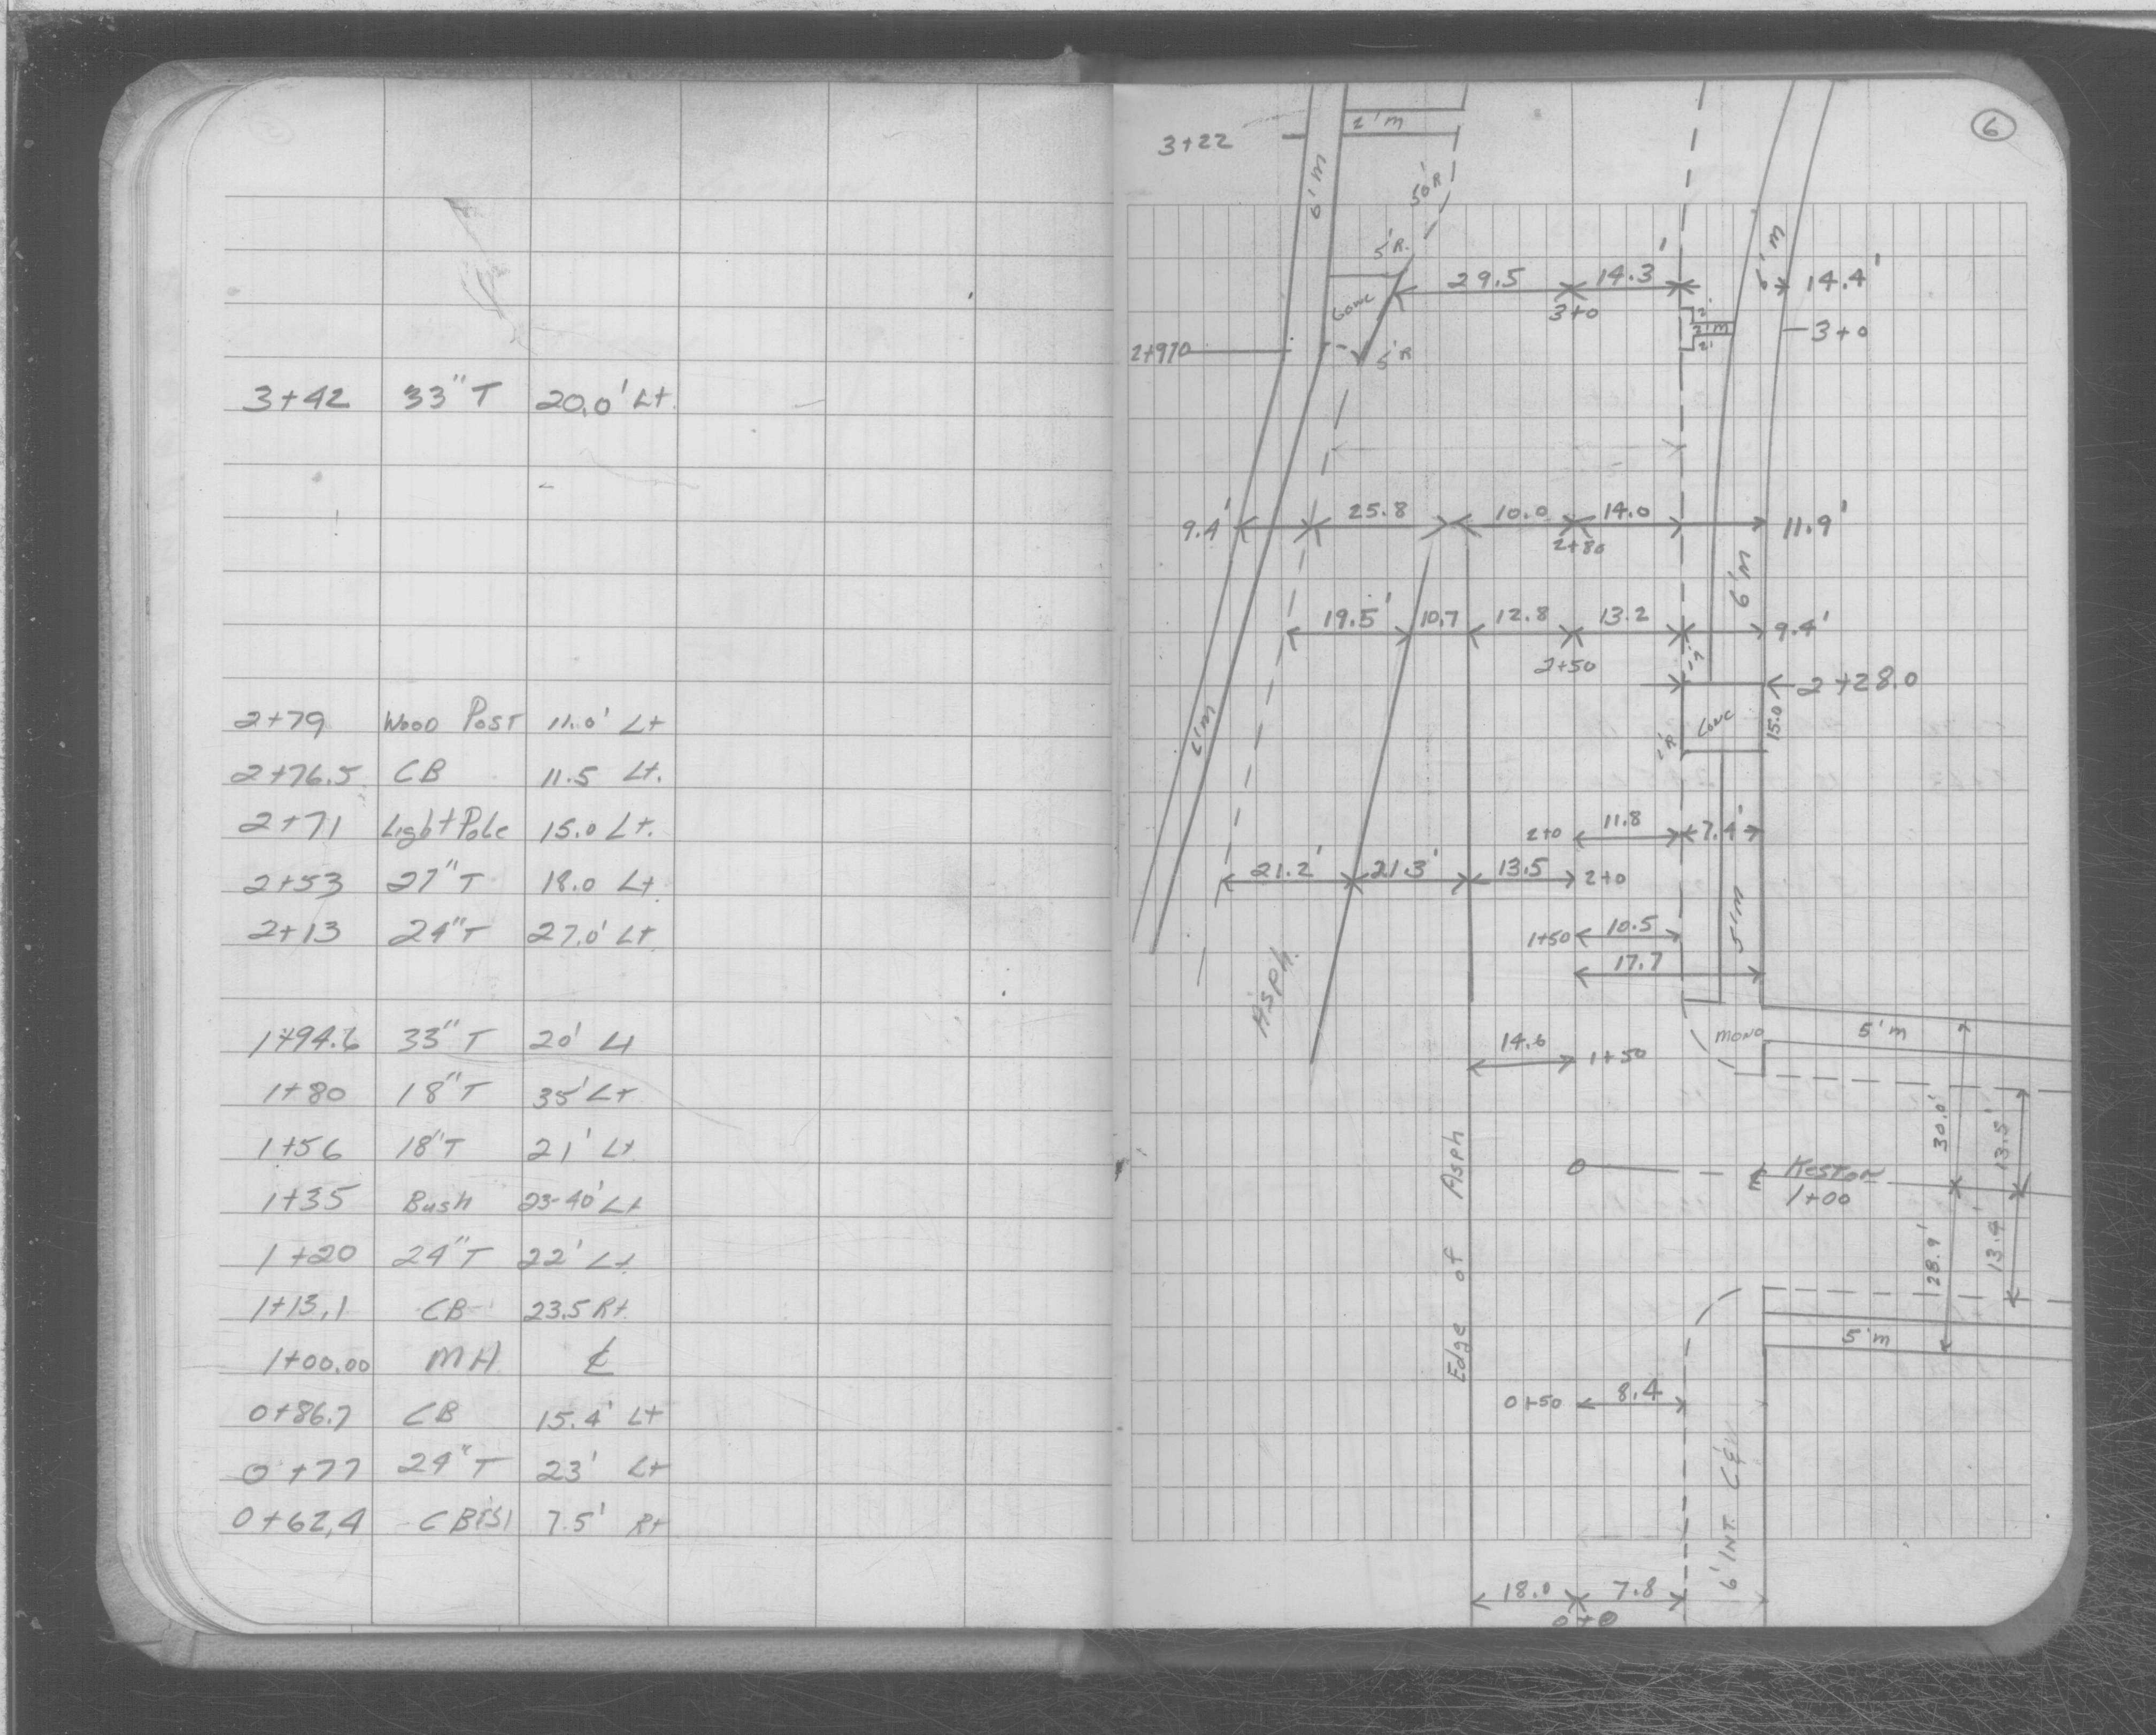 3+42 33" T 20.0' Lt.
2+79 Wood Post 11.0' Lt
2+76.5 CB 11.5 Lt.
2+71 Light Pole 15.0 Lt.
2+53 27" T 18.0 Lt.
2+13 24" T 27.0' Lt.
1+94.6 33" T 20' Lt
1+80 18" T 35' Lt
1+56 18" T 21' Lt
1+35 Bush 23-40' Lt
1+20 24" T 22' Lt.
1+13.1 CB 23.5 Rt.
1+00.00 MH ℄
0+86.7 CB 15.4' Lt
0+77 24" T 23' Lt
0+62.4 7.5' Rt
6
3+22 2'm
6'm 50'R
5'R. 6'm
29.5 14.3' 14.4'
Conc 3+0
2' 2'm 2' 3+0
5'R
9.4' 25.8 10.0 14.0 11.9'
2+80
6'm
19.5' 10.7 12.8 13.2 9.4'
2+50
2+28.0
6'm Conc 15.0
2+0 11.8 7.4'
21.2' 21.3' 13.5 2+0
1+50 10.5 5'm
17.7
Asph.
mono 5'm
14.6 1+50
30.0' 13.5'
1+00
28.9' 13.4'
Edge of Asph
5'm
0+50 8.4
6' INT. C&
18.0 7.8
0+0